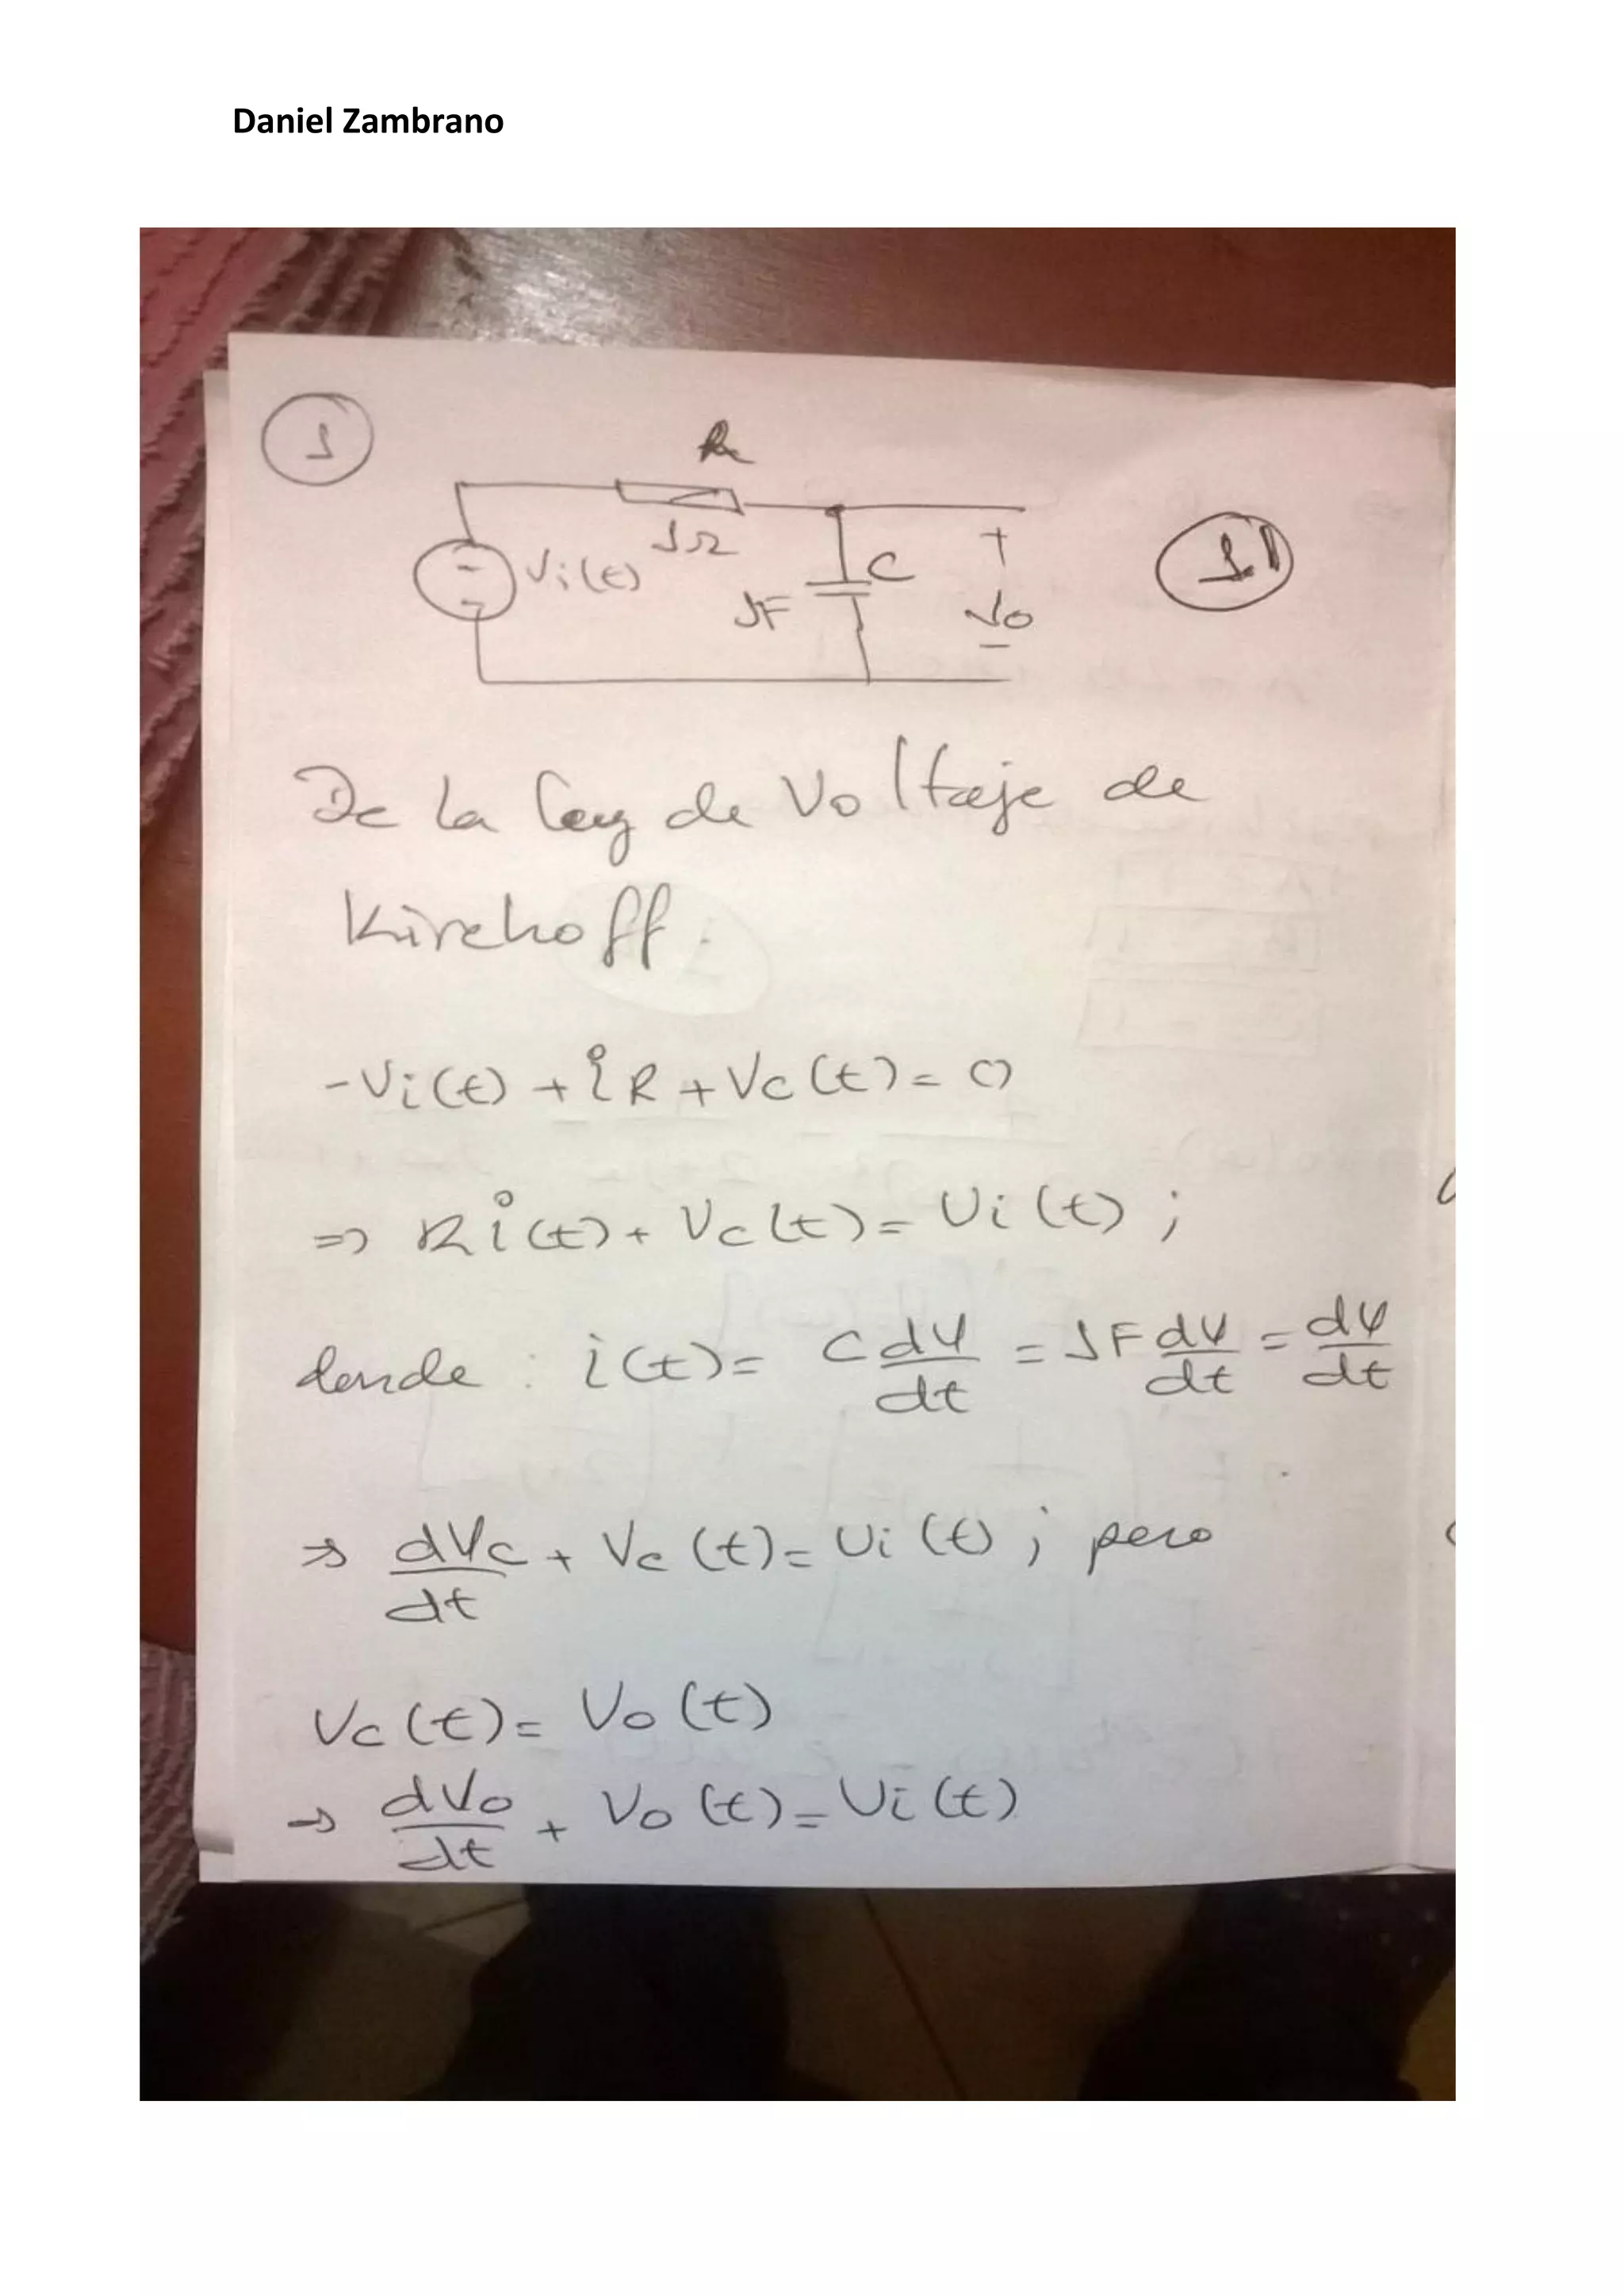 Daniel Zambrano
1
R
1Ω
Vi(t)
C
1F
+
Vo
-
1.1
De la ley de Voltaje de
Kirchoff:
-Vi(t) + iR + Vc(t) = 0
=> Ri(t) + Vc(t) = Vi(t) ;
donde : i(t) = C dV/dt = 1F dV/dt = dV/dt
→ dVc/dt + Vc(t) = Vi(t) ; pero
Vc(t) = Vo(t)
→ dVo/dt + Vo(t) = Vi(t)